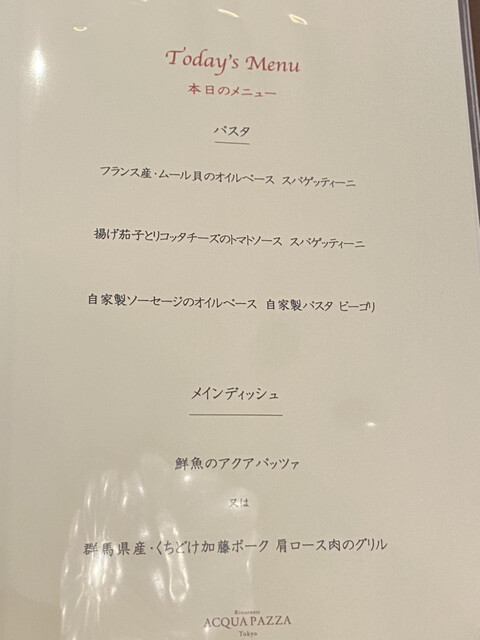 Today's Menu
本日のメニュー
パスタ
フランス産・ムール貝のオイルベース スパゲッティーニ
揚げ茄子とリコッタチーズのトマトソース スパゲッティーニ
自家製ソーセージのオイルベース 自家製パスタ ビーゴリ
メインディッシュ
鮮魚のアクアパッツァ
又は
群馬県産・くちどけ加藤ポーク 肩ロース肉のグリル
Ristorante
ACQUA PAZZA
Tokyo